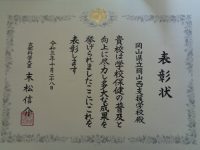 表彰状
岡山県立岡山西支援学校殿
貴校は学校保健の普及と
向上に尽力し多大な成果を
挙げられましたここにこれを
表彰します
令和三年十月二十八日
文部科学大臣
末松信介